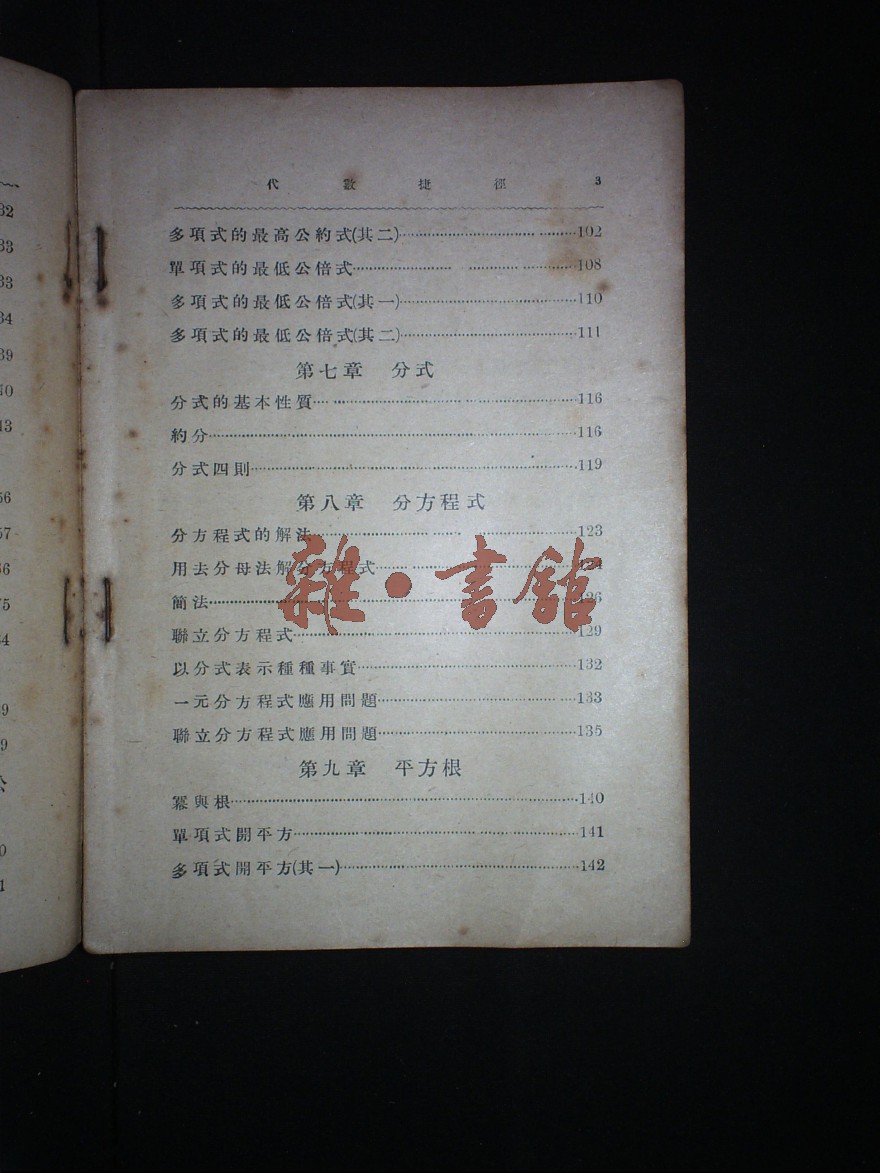 代數捷徑 3
多項式的最高公約式(其二)……102
單項式的最低公倍式……108
多項式的最低公倍式(其一)……110
多項式的最低公倍式(其二)……111
第七章 分式
分式的基本性質……116
約分……116
分式四則……119
第八章 分方程式
分方程式的解法……123
用去分母法解分方程式……124
簡法……126
聯立分方程式……129
以分式表示種種事實……132
一元分方程式應用問題……133
聯立分方程式應用問題……135
第九章 平方根
冪與根……140
單項式開平方……141
多項式開平方(其一)……142
雜·書館